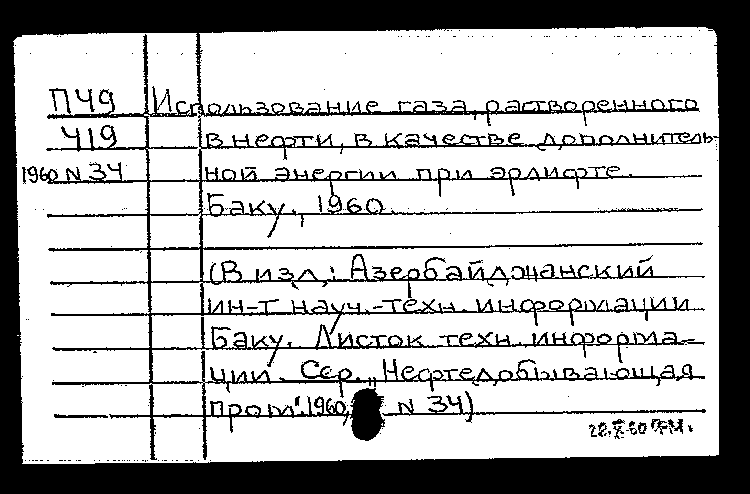 П49 Использование газа, растворенного
Ч19 в нефти, в качестве дополнитель-
1960 N 34 ной энергии при эрлифте.
Баку., 1960.
(В изд,: Азербайджанский
ин-т науч.-техн. информации
Баку. Листок техн. информа-
ции. Сер. „Нефтедобывающая
пром". 1960, N 34)